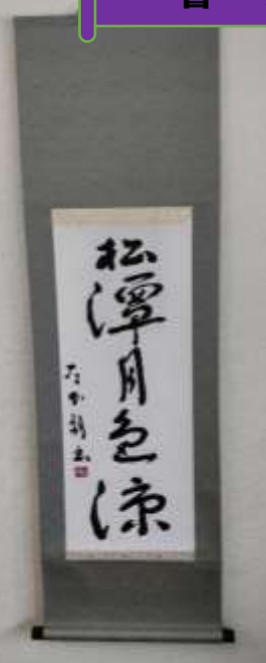 松潭月色涼